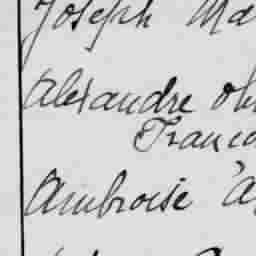 Joseph Ma
Alexandre ob
Franco
Ambroise a